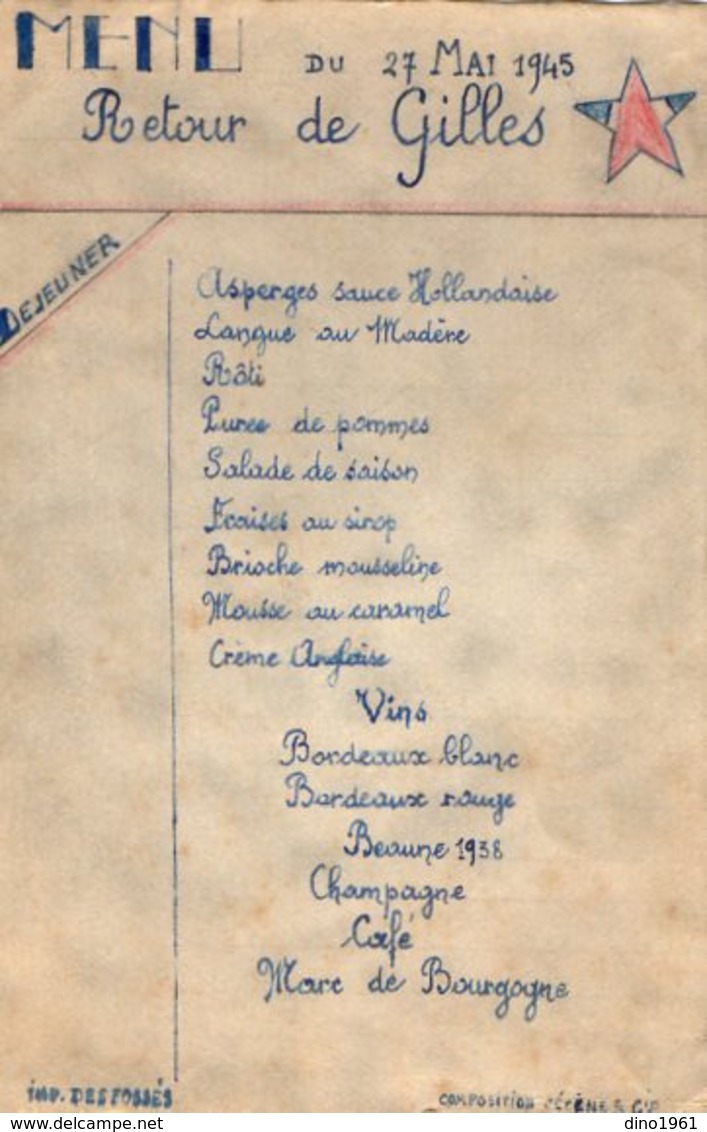 MENU DU 27 MAI 1945
Retour de Gilles
DEJEUNER
Asperges sauce Hollandaise
Langue au Madère
Rôti
Puree de pommes
Salade de saison
Fraises au sirop
Brioche mousseline
Mousse au caramel
Crème Anglaise
Vins
Bordeaux blanc
Bordeaux rouge
Beaune 1938
Champagne
Café
Marc de Bourgogne
IMP. DESFOSSÉS
COMPOSITION
dino1961